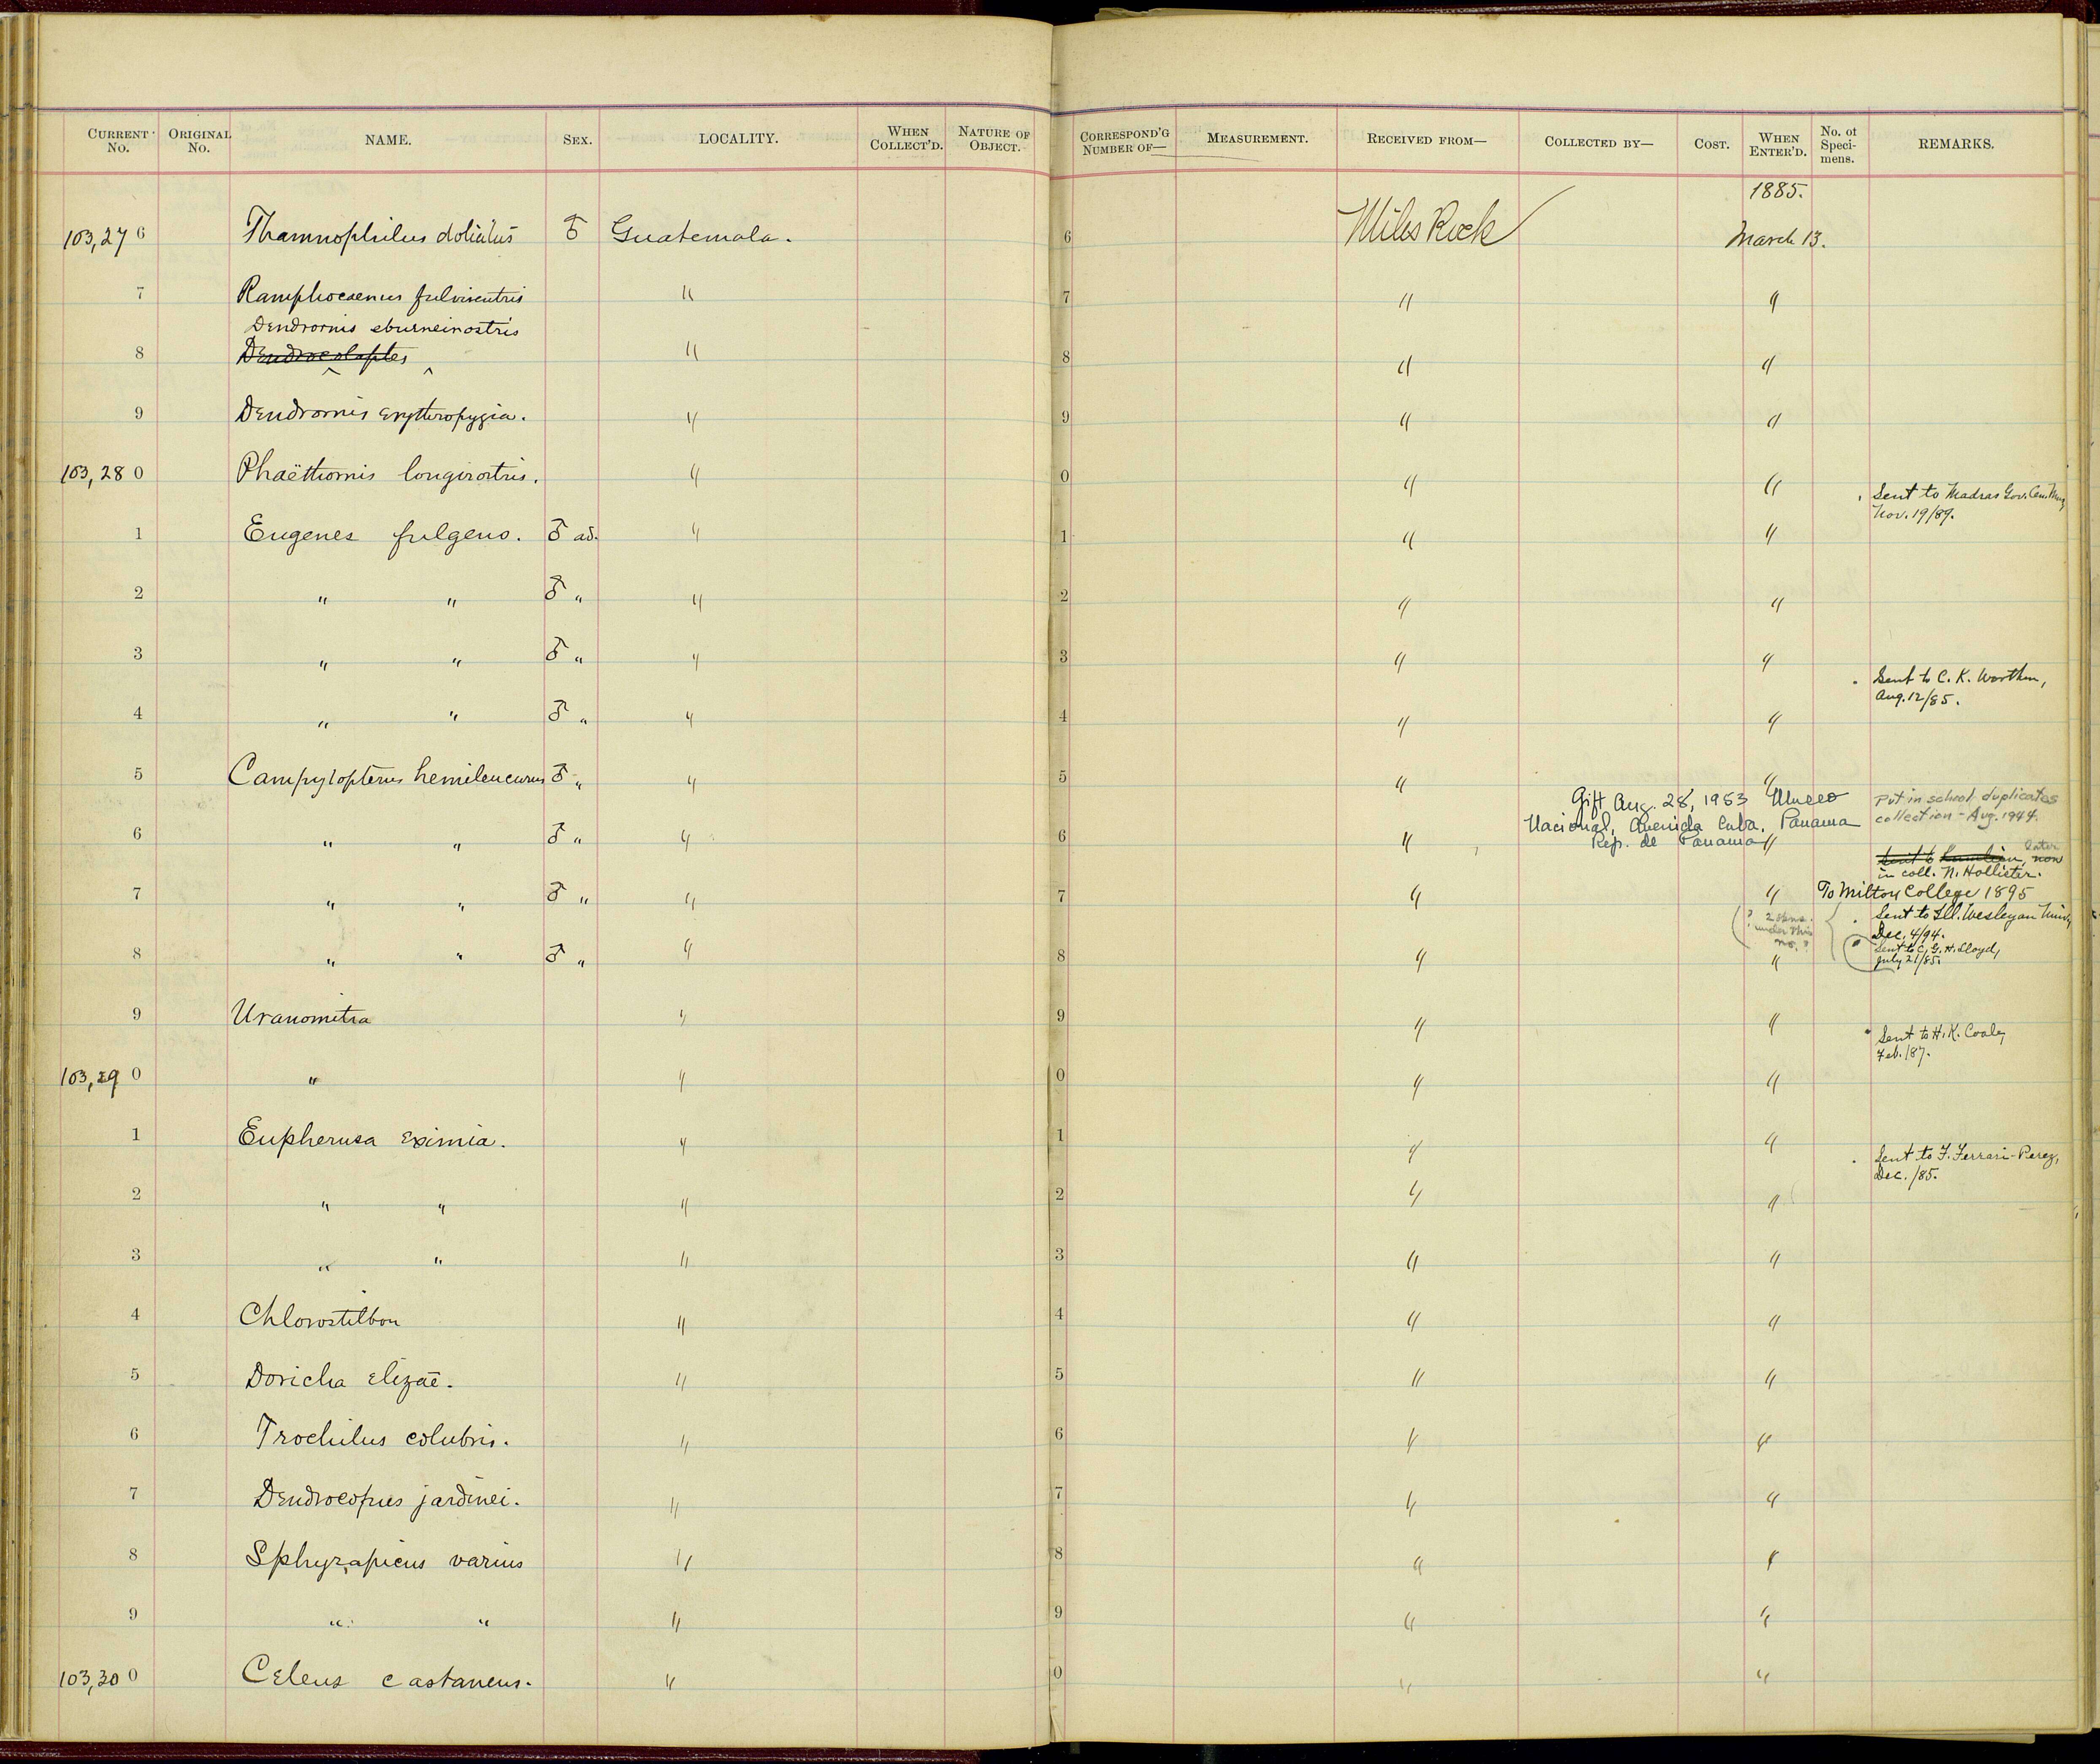 CURRENT No. ORIGINAL No. NAME. SEX. LOCALITY. WHEN COLLECT'D. NATURE OF OBJECT. CORRESPOND'G NUMBER OF— MEASUREMENT. RECEIVED FROM— COLLECTED BY— COST. WHEN ENTER'D. No. of Speci-mens. REMARKS.
1885.
103,276 Thamnophilus doliatus ♂ Guatemala. 6 Miles Rock March 13.
7 Ramphocaenus fulviventris " 7 " "
Dendrornis eburneirostris
8 Dendrocolaptes " 8 " "
9 Dendrornis erythropygia. " 9 " "
103,280 Phaëthornis longirostris. " 0 " " Sent to Madras Gov. Cen. Mus,
Nov. 19/89.
1 Eugenes fulgens. ♂ ad. " 1 " "
2 " " ♂ " " 2 " "
3 " " ♂ " " 3 " "
Sent to C. K. Worthen,
Aug. 12/85.
4 " " ♂ " " 4 " "
5 Campylopterus hemileucurus ♂ " " 5 " "
Gift Aug. 28, 1953 Museo
Nacional, Avenida Cuba, Panama
Rep. de Panama
Put in school duplicates
collection - Aug. 1944.
6 " " ♂ " " 6 " "
Sent to Kumlien, later now
in coll. N. Hollister.
7 " " ♂ " " 7 " " To Milton College 1895
? 2 skns.
? under this
no. ?
Sent to Ill. Wesleyan Univ,
Dec. 4/94.
8 " " ♂ " " 8 " " Sent to C. G. H. Lloyd,
July 21/85.
9 Uranomitra " 9 " "
Sent to H. K. Coale,
Feb. /87.
103,290 " " 0 " "
1 Eupherusa eximia. " 1 " "
Sent to F. Ferrari-Perez,
Dec. /85.
2 " " " 2 " "
3 " " " 3 " "
4 Chlorostilbon " 4 " "
5 Doricha elizae. " 5 " "
6 Trochilus colubris. " 6 " "
7 Dendrocopus jardinei. " 7 " "
8 Sphyrapicus varius " 8 " "
9 " " " 9 " "
103,300 Celeus castaneus. " 0 " "